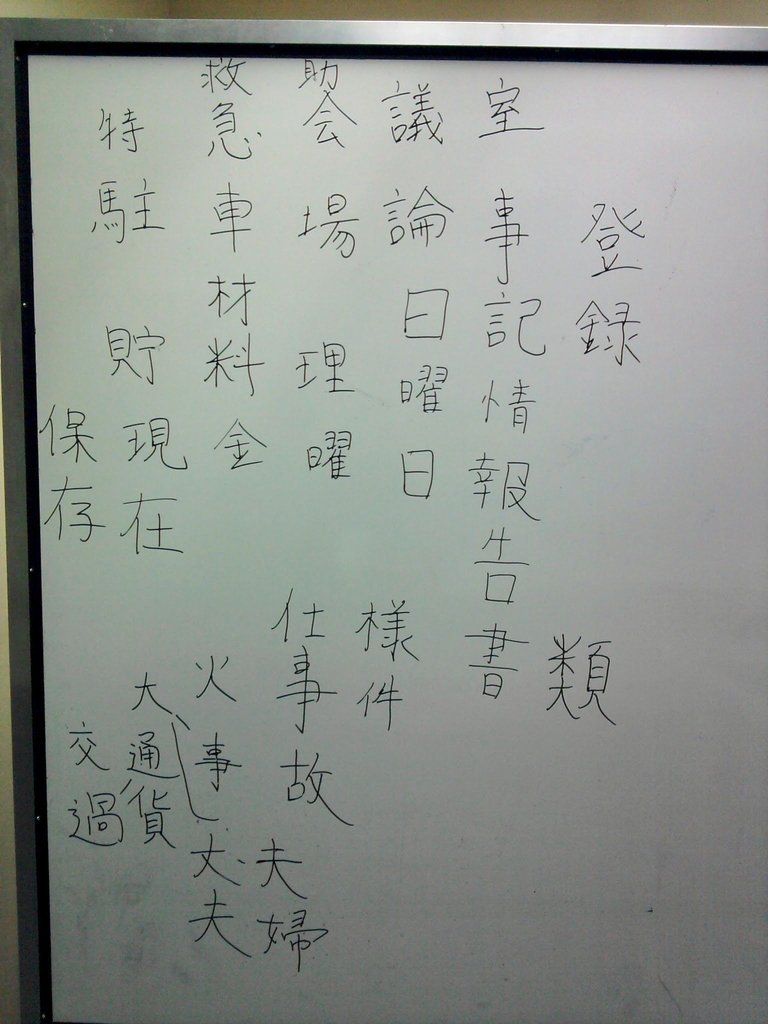 登録
室事記情報告書類
議論日曜日
様件
助会場理曜
仕事故
夫婦
救急車材料金
火事
丈夫
特駐貯現在
大通貨
保存
交過